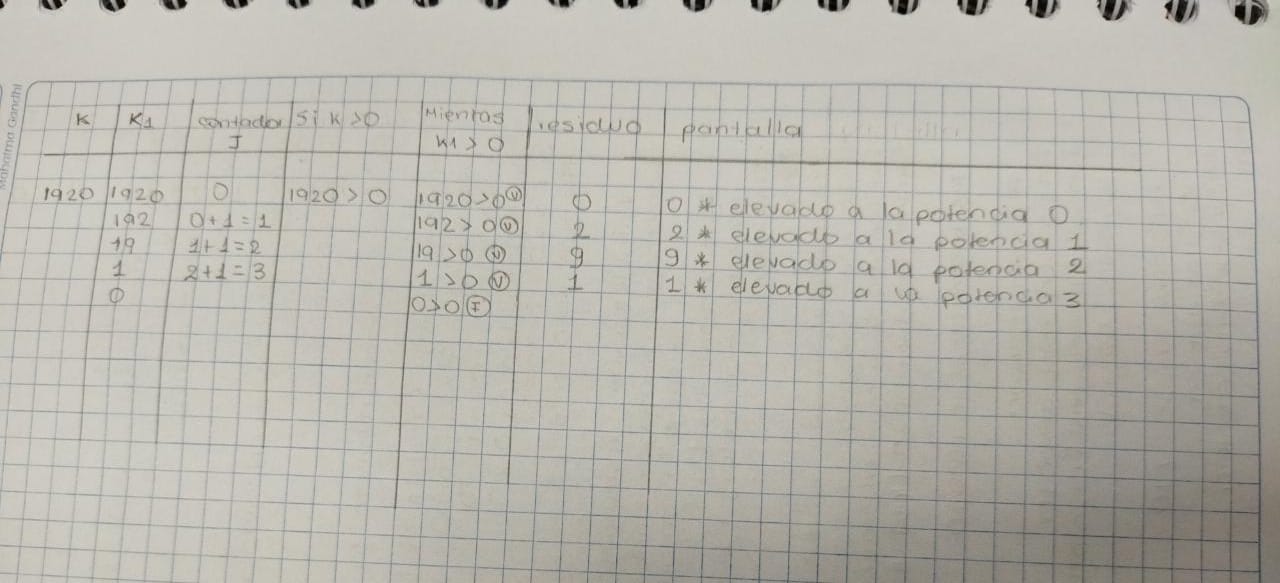 Mahatma Gandhi
K K1 contador J Si K > 0 Mientras K1 > 0 residuo pantalla
1920 1920 0 1920 > 0 1920 > 0 (V) 0 0 * elevado a la potencia 0
192 0+1=1 192 > 0 (V) 2 2 * elevado a la potencia 1
19 1+1=2 19 > 0 (V) 9 9 * elevado a la potencia 2
1 2+1=3 1 > 0 (V) 1 1 * elevado a la potencia 3
0 0 > 0 (F)